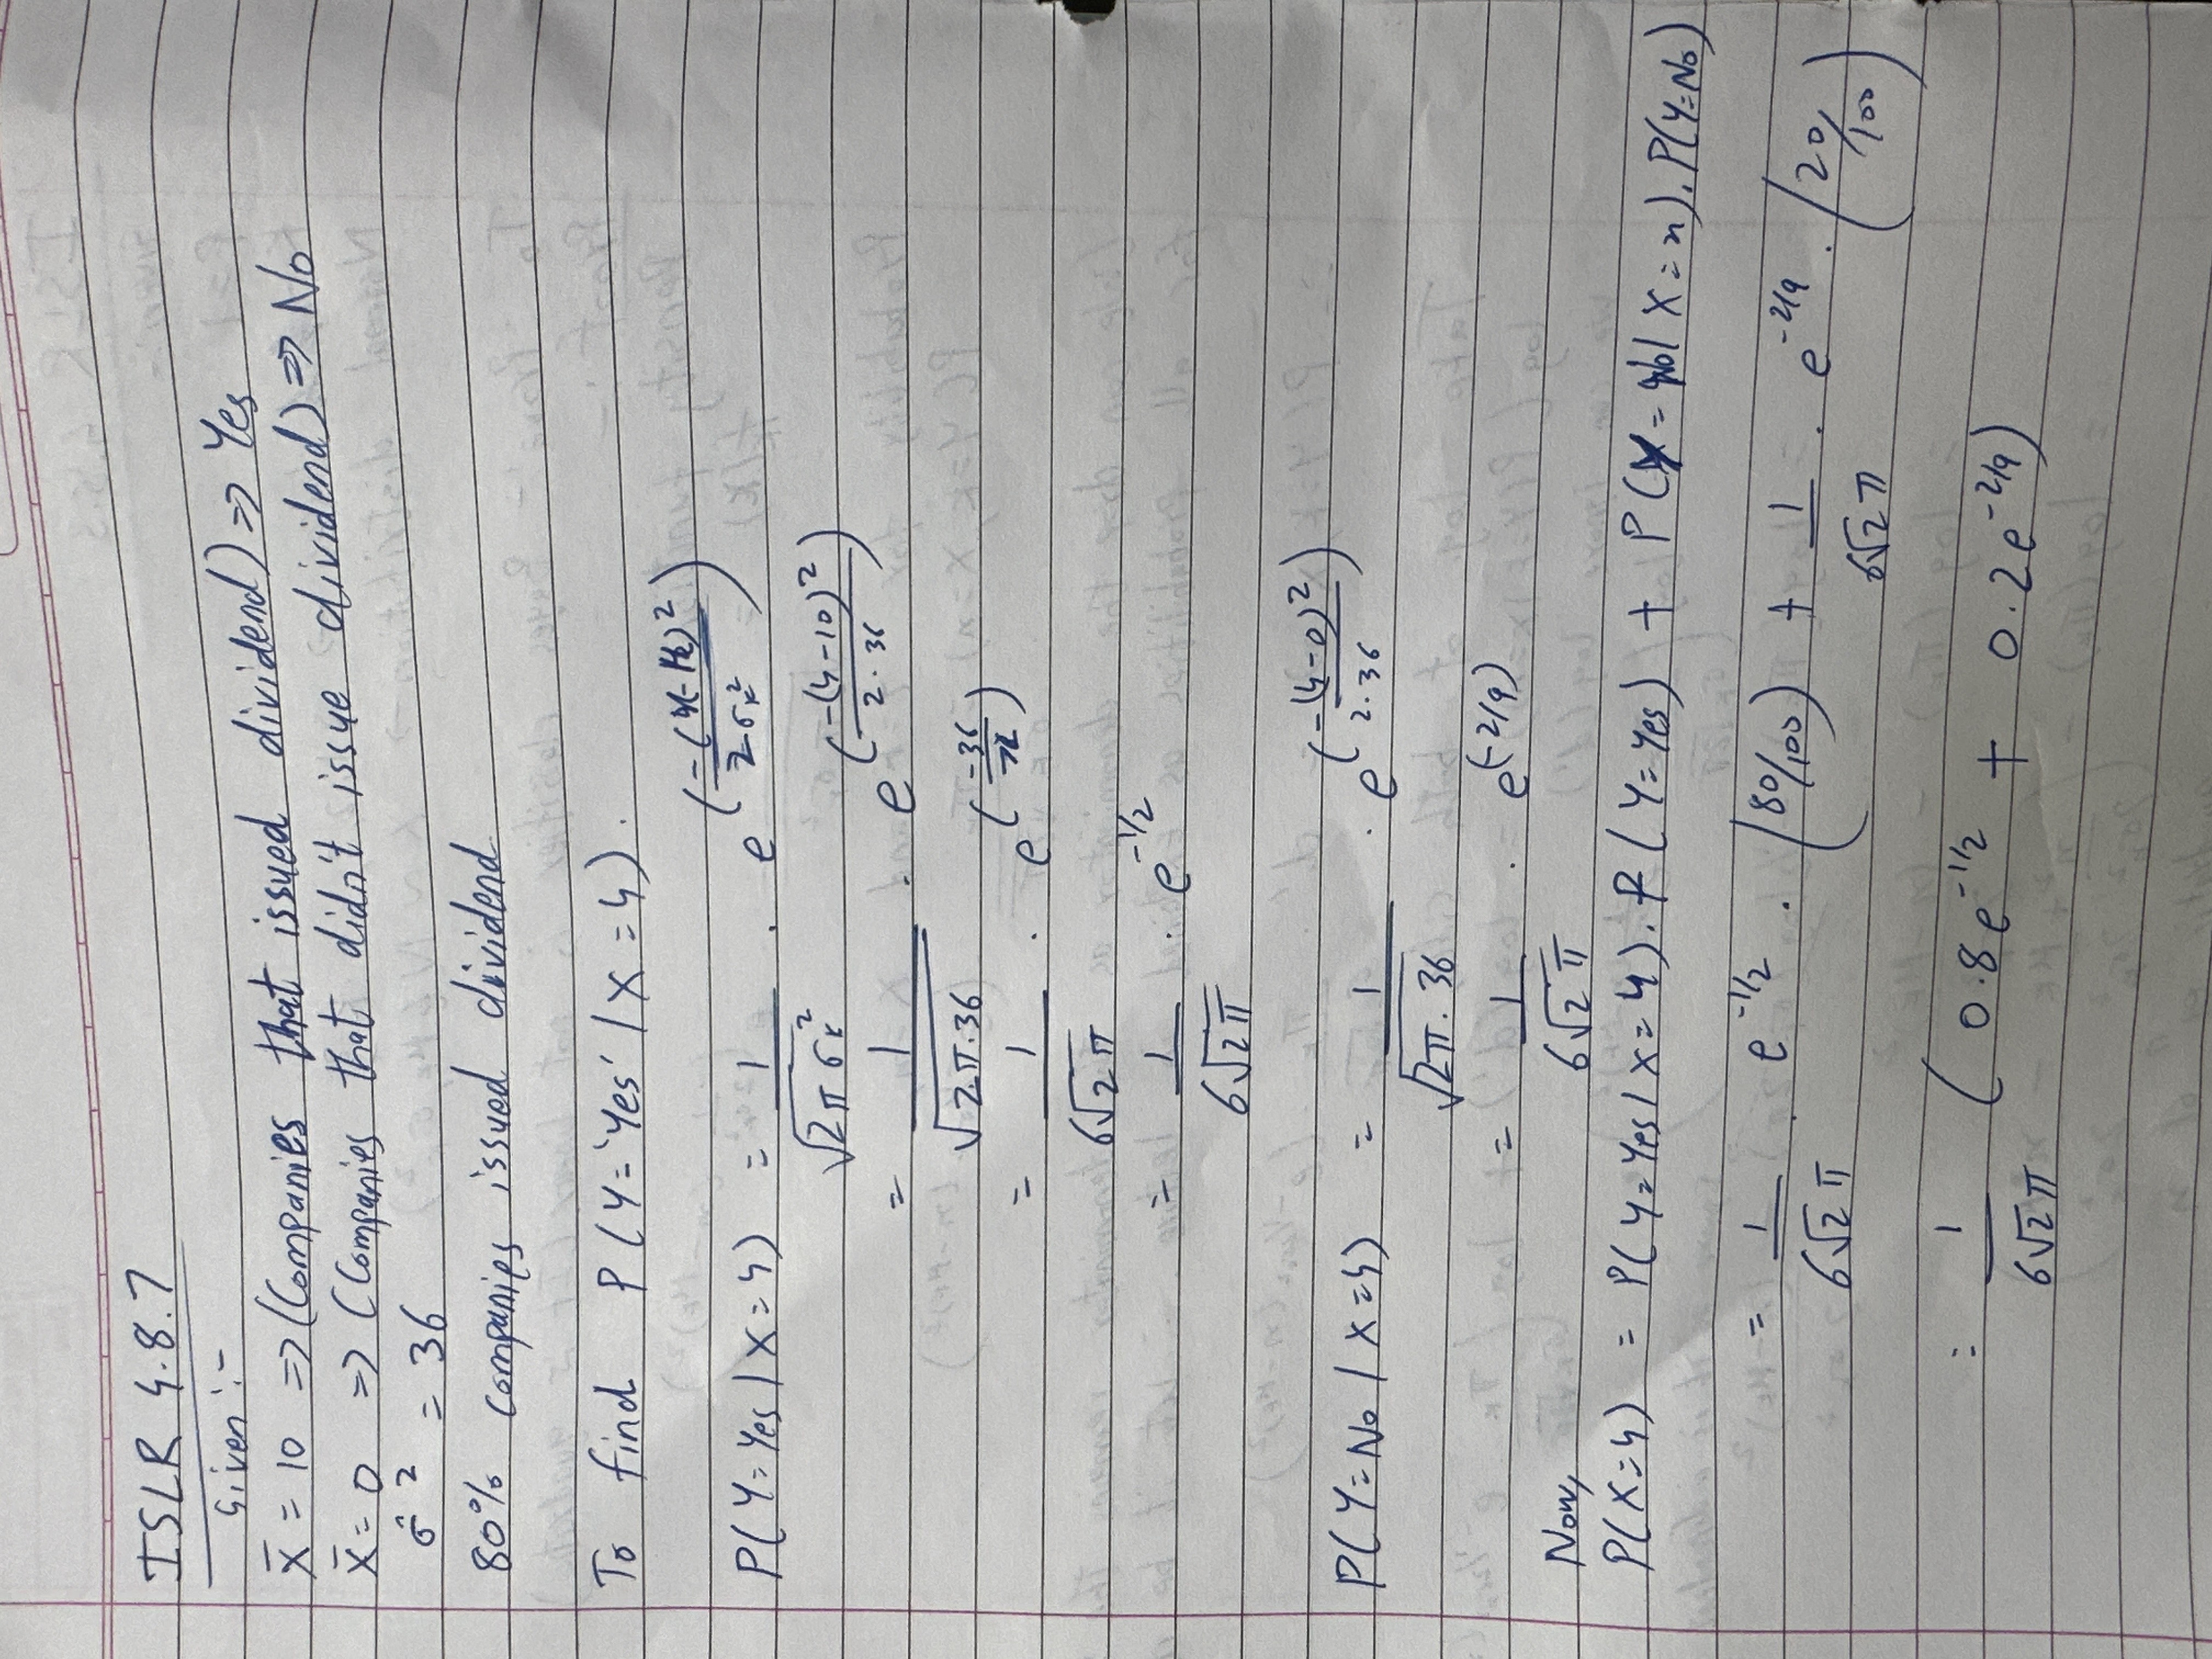 ISLR 4.8.7
Given :-
x̄ = 10 => (Companies that issued dividend) => Yes
x̄ = 0 => (Companies that didn't issue dividend) => No
σ̂² = 36
80% companies issued dividend
To find P(Y='Yes' | X=4).
P(Y=Yes | X=4) = 1/√(2πσₖ²) . e^(-(x-μₖ)²/2σₖ²)
= 1/√(2.π.36) . e^(-(4-10)²/2.36)
= 1/6√2π . e^(-36/72)
= 1/6√2π . e^-1/2
P(Y=No | X=4) = 1/√(2π.36) . e^(-(4-0)²/2.36)
= 1/6√2π . e^(-2/9)
Now,
P(X=4) = P(Y=Yes | X=4).P(Y=Yes) + P(Y=No | X=x).P(Y=No)
= 1/6√2π . e^-1/2 . (80/100) + 1/6√2π . e^-2/9 . (20/100)
= 1/6√2π (0.8e^-1/2 + 0.2e^-2/9)